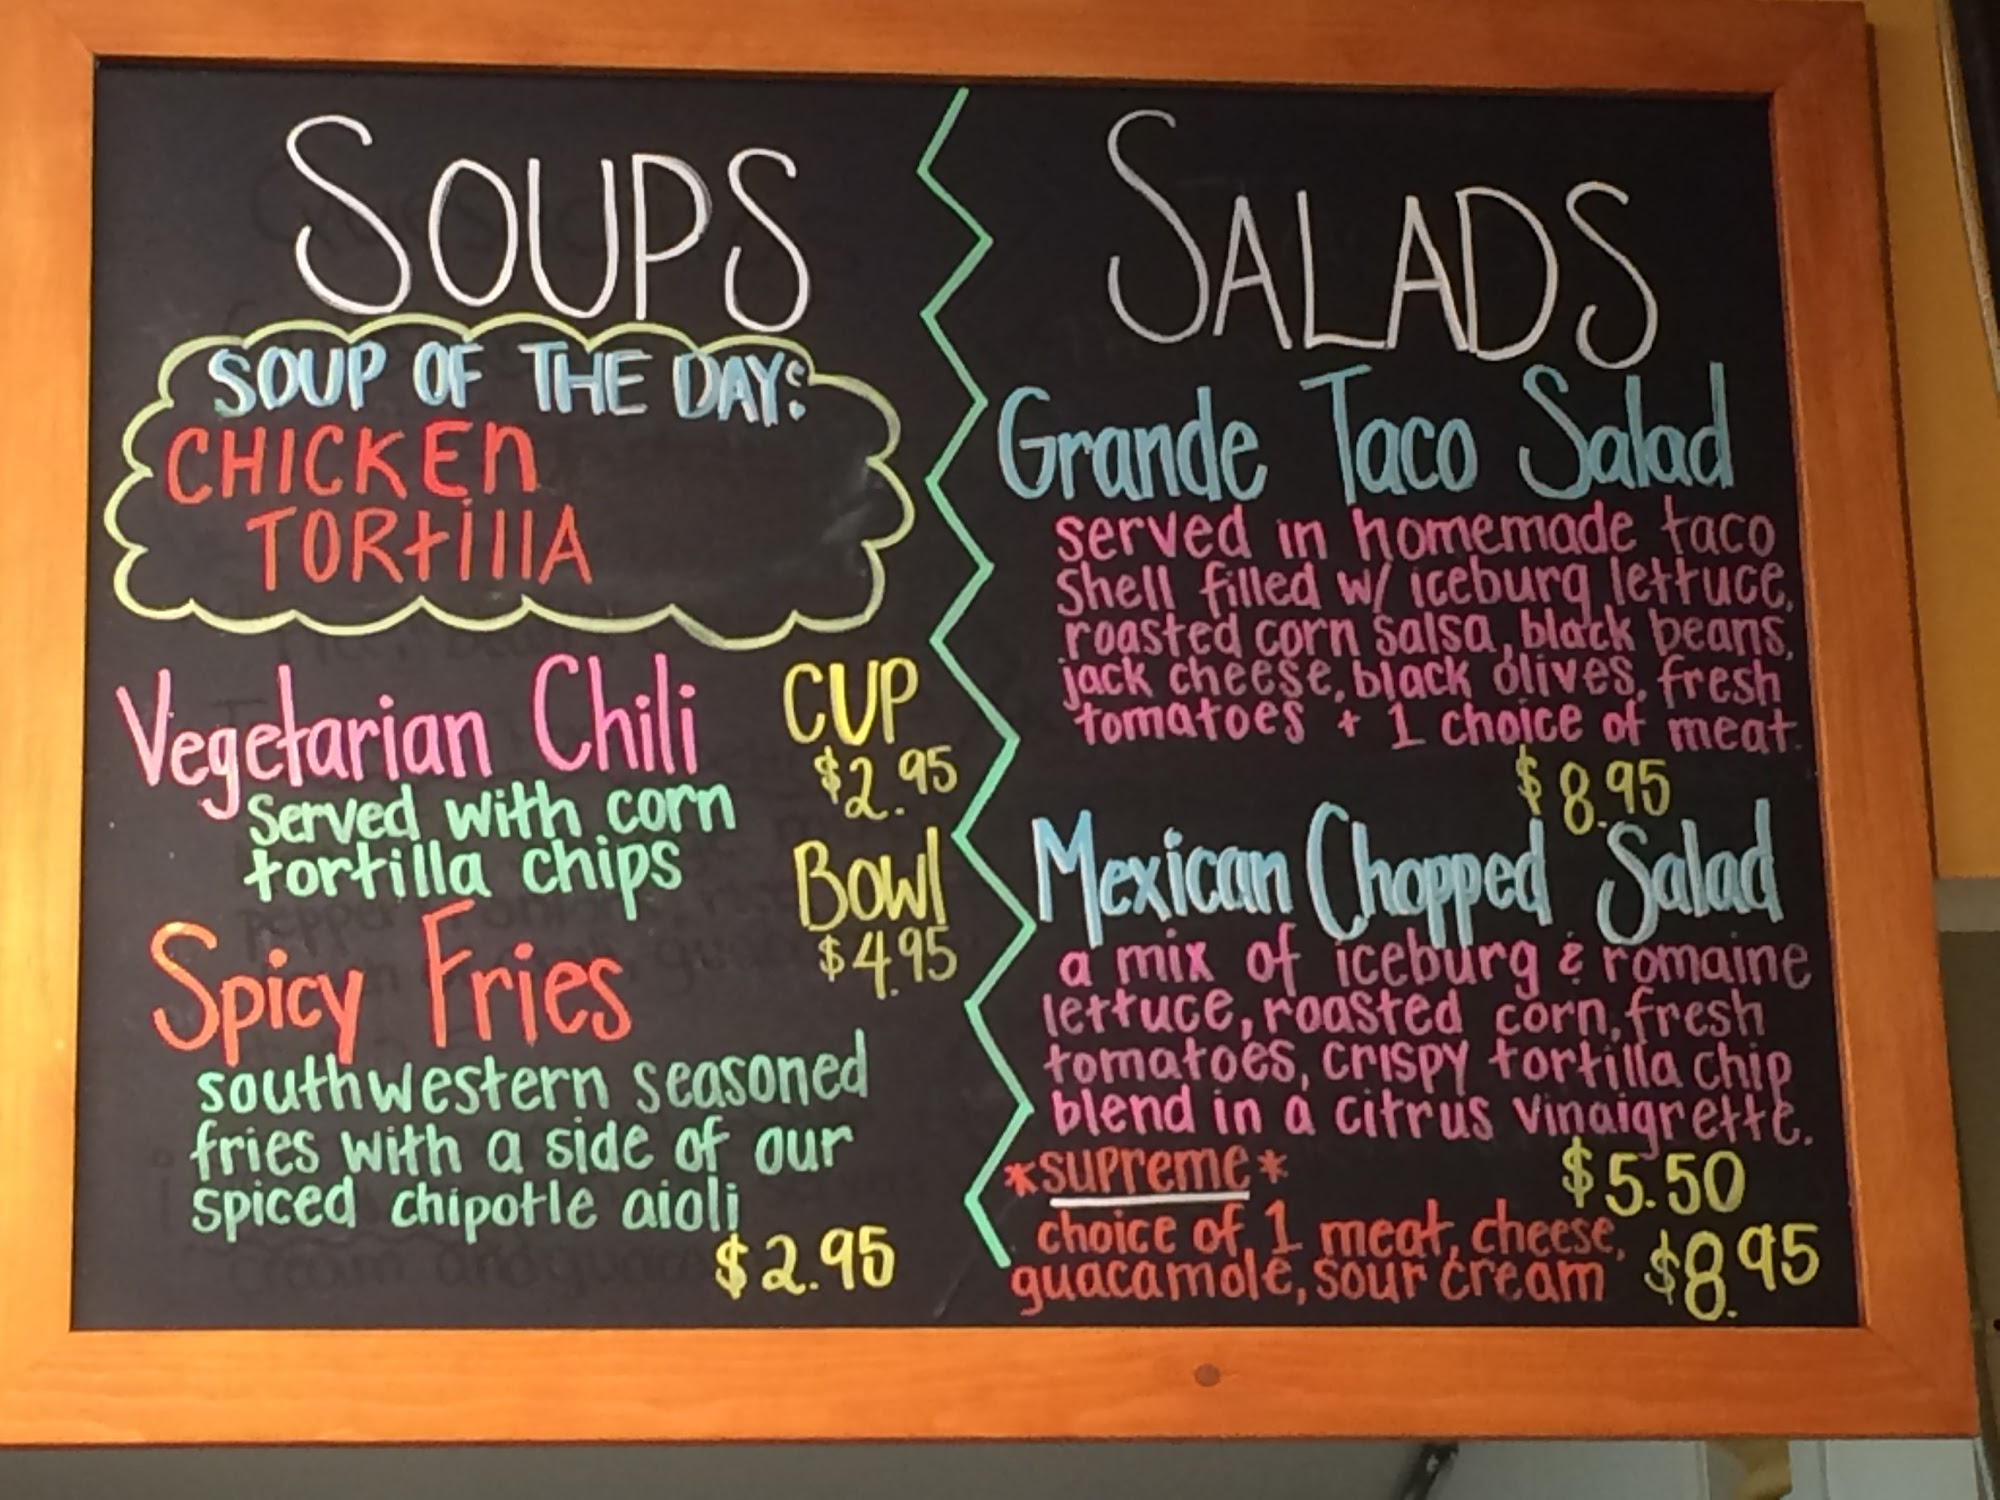 SOUPS
SOUP OF THE DAY:
CHICKEN
TORtillA
Vegetarian Chili
Served with corn
tortilla chips
CUP
$2.95
Bowl
$4.95
Spicy Fries
southwestern seasoned
fries with a side of our
spiced chipotle aioli
$2.95
SALADS
Grande Taco Salad
served in homemade taco
Shell filled w/ iceburg lettuce,
roasted corn salsa, black beans,
jack cheese, black olives, fresh
tomatoes + 1 choice of meat.
$8.95
Mexican Chopped Salad
a mix of iceburg & romaine
lettuce, roasted corn, fresh
tomatoes, crispy tortilla chip
blend in a citrus vinaigrette.
$5.50
*supreme*
choice of 1 meat, cheese,
guacamole, sour cream
$8.95